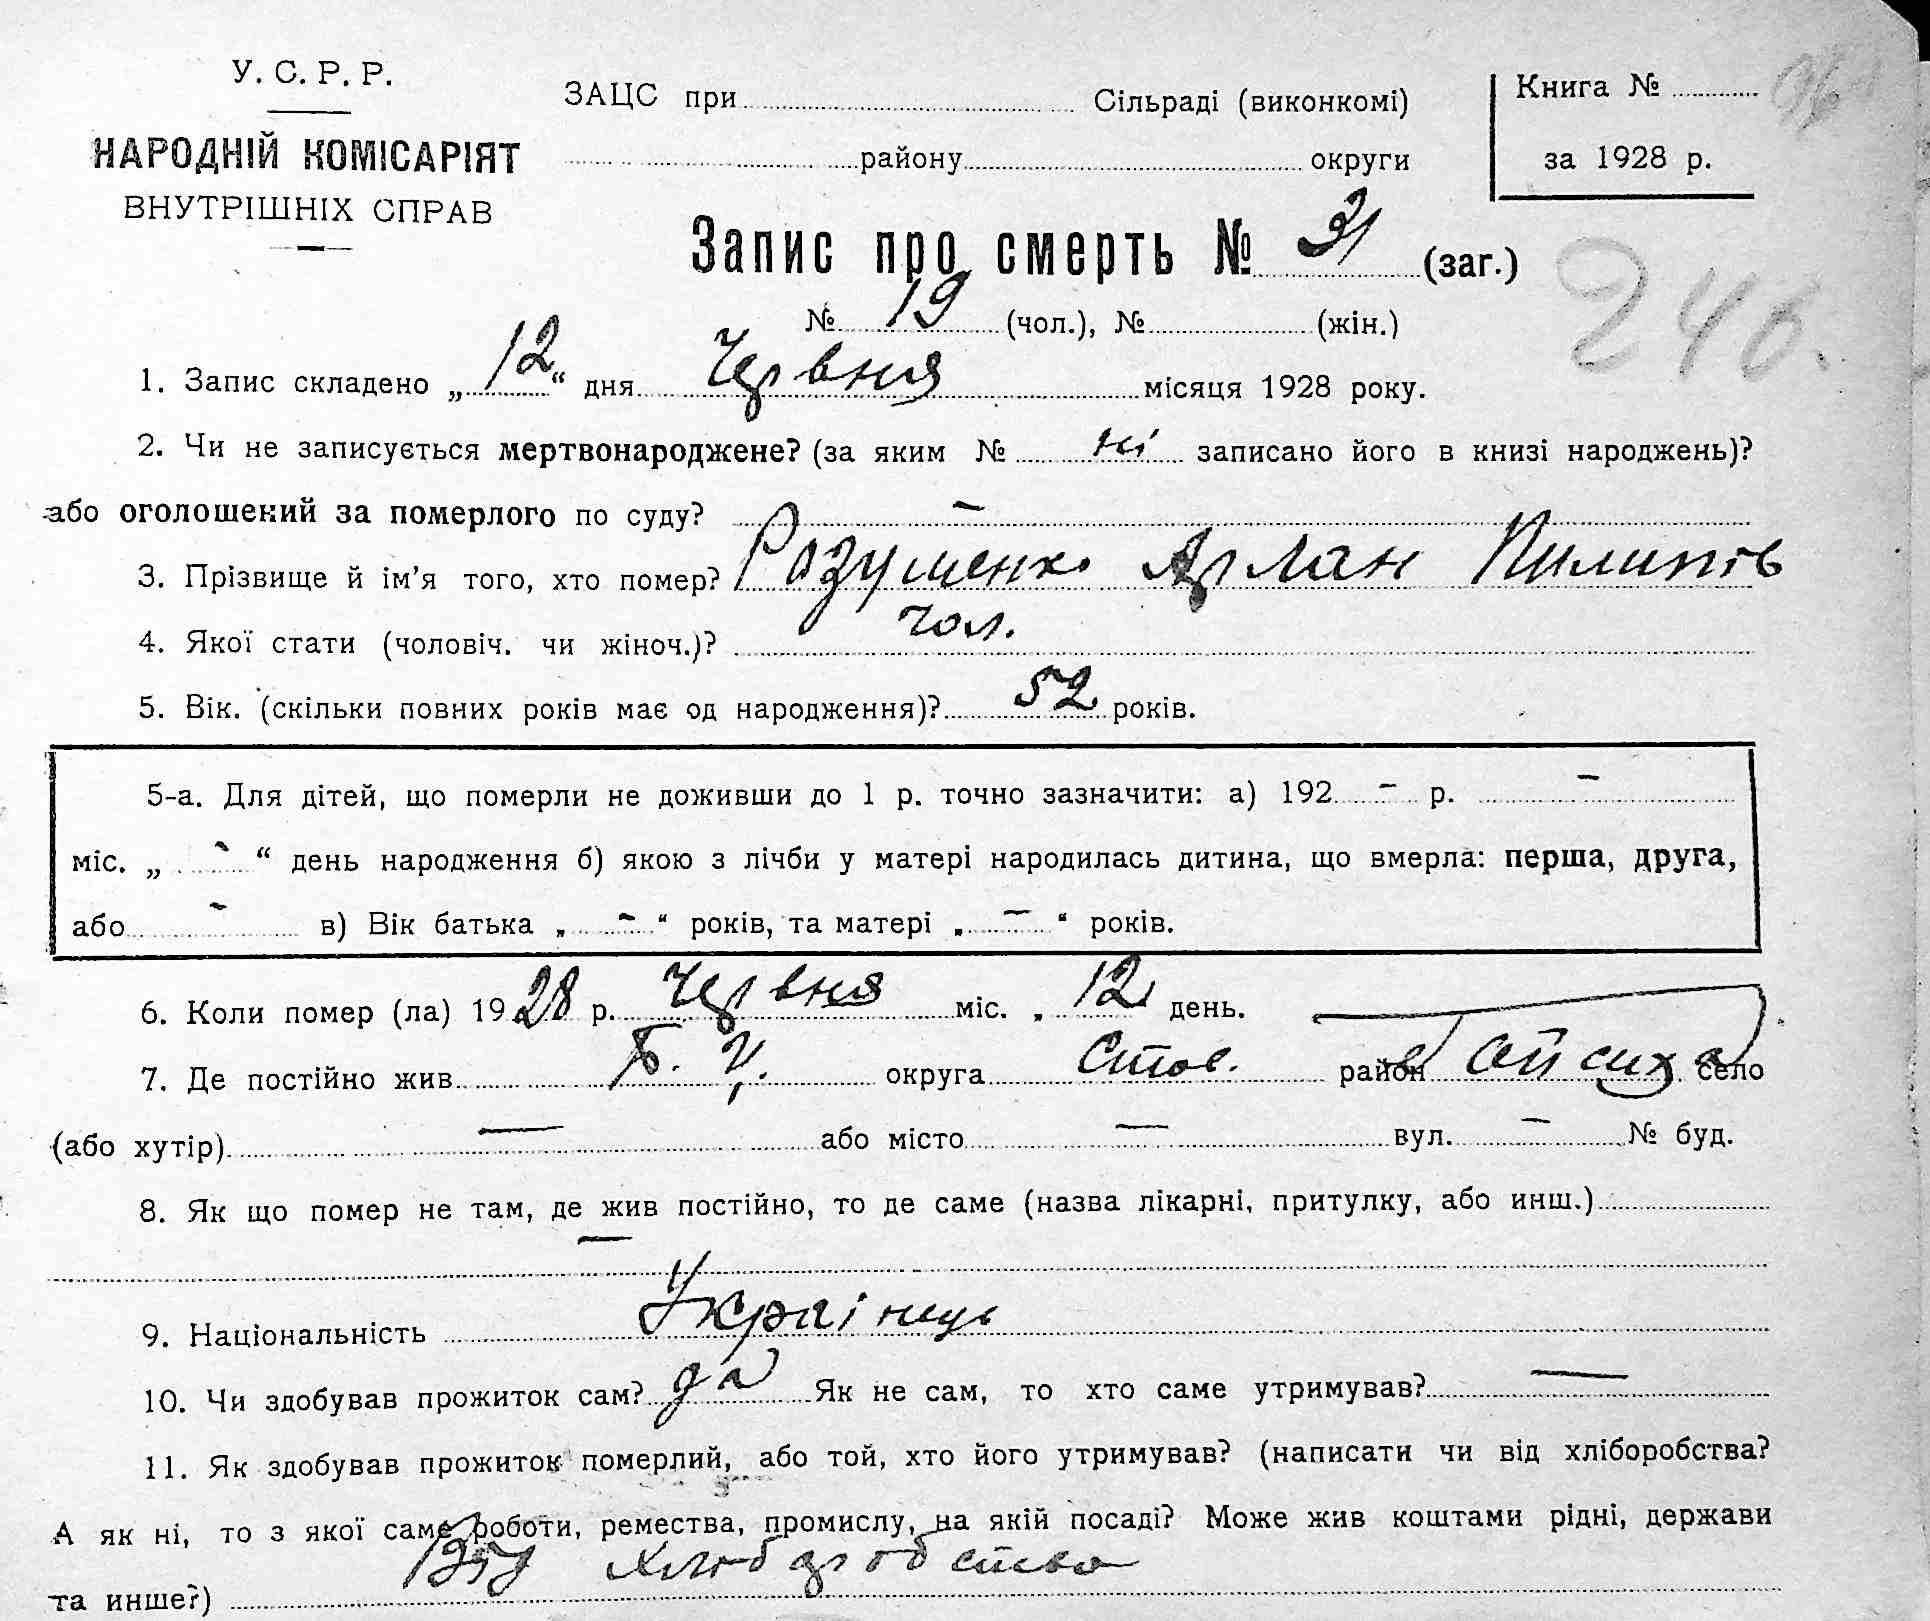 У. С. Р. Р.
НАРОДНІЙ КОМІСАРІЯТ
ВНУТРІШНІХ СПРАВ
ЗАЦС при Сільраді (виконкомі)
району округи
Книга №
за 1928 р.
Запис про смерть № 31 (заг.)
246.
№ 19 (чол.), № (жін.)
1. Запис складено „12“ дня Червня місяця 1928 року.
2. Чи не записується мертвонароджене? (за яким № ні записано його в книзі народжень)?
або оголошений за померлого по суду? –
3. Прізвище й ім’я того, хто помер? Розуменко Пилипів
4. Якої стати (чоловіч. чи жіноч.)? чол.
5. Вік. (скільки повних років має од народження)? 52 років.
5-а. Для дітей, що померли не доживши до 1 р. точно зазначити: а) 192 – р. –
міс. „ – “ день народження б) якою з лічби у матері народилась дитина, що вмерла: перша, друга,
або – в) Вік батька „ – “ років, та матері „ – “ років.
6. Коли помер (ла) 1928 р. Червня міс. „12 день.
7. Де постійно жив Б. Ц. округа Став. район село
(або хутір) — або місто — вул. – № буд.
8. Як що помер не там, де жив постійно, то де саме (назва лікарні, притулку, або инш.)
—
9. Національність Українець
10. Чи здобував прожиток сам? да Як не сам, то хто саме утримував? —
11. Як здобував прожиток померлий, або той, хто його утримував? (написати чи від хліборобства?
А як ні, то з якої саме роботи, ремества, промислу, на якій посаді? Може жив коштами рідні, держави
та инше?) Від хліборобства